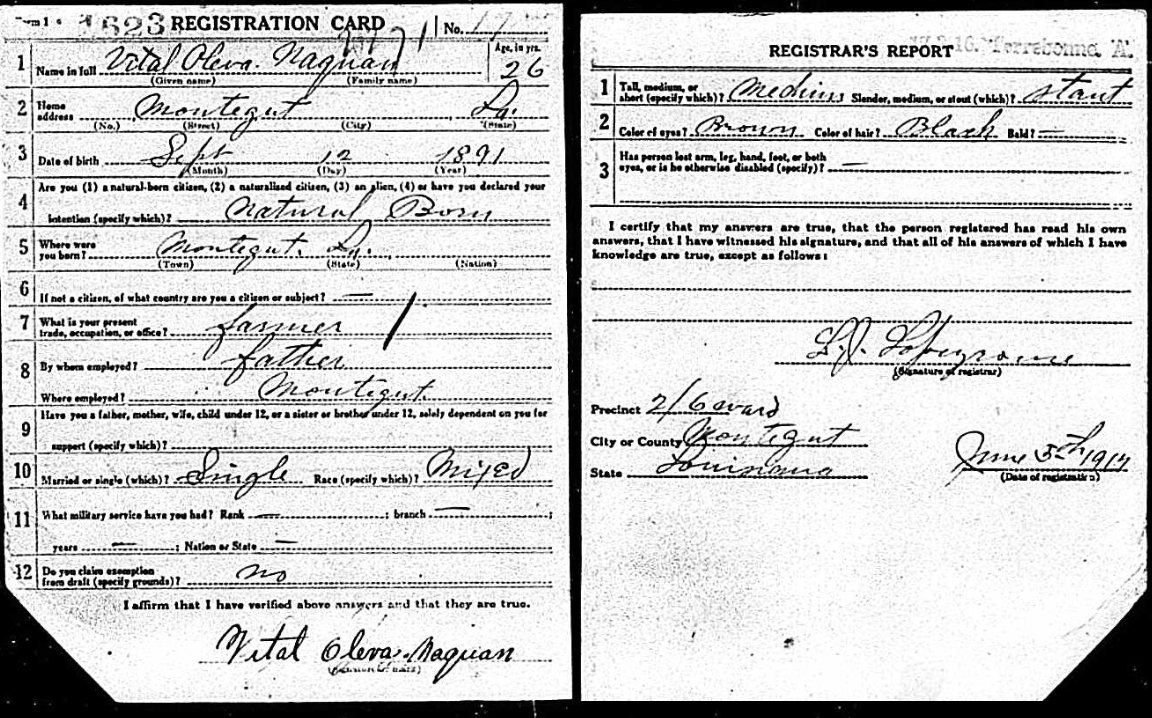 Form 1 1623 REGISTRATION CARD No. 17
1 Name in full Vital Oleva. Naquan Age, in yrs. 26
(Given name) (Family name)
2 Home address Montegut La.
(No.) (Street) (City) (State)
3 Date of birth Sept 12 1891
(Month) (Day) (Year)
4 Are you (1) a natural-born citizen, (2) a naturalized citizen, (3) an alien, (4) or have you declared your
intention (specify which)? Natural Born
5 Where were you born? Montegut. La.
(Town) (State) (Nation)
6 If not a citizen, of what country are you a citizen or subject? —
7 What is your present trade, occupation, or office? farmer
8 By whom employed? father
Where employed? Montegut.
9 Have you a father, mother, wife, child under 12, or a sister or brother under 12, solely dependent on you for
support (specify which)?
10 Married or single (which)? Single Race (specify which)? Mixed
11 What military service have you had? Rank — ; branch — ;
years — ; Nation or State —
12 Do you claim exemption from draft (specify grounds)? no
I affirm that I have verified above answers and that they are true.
Vital Oleva. Naquan
REGISTRAR'S REPORT 16. Terrebonne A.
1 Tall, medium, or short (specify which)? Medium Slender, medium, or stout (which)? Staut
2 Color of eyes? Brown Color of hair? Black Bald? —
3 Has person lost arm, leg, hand, foot, or both
eyes, or is he otherwise disabled (specify)? —
I certify that my answers are true, that the person registered has read his own
answers, that I have witnessed his signature, and that all of his answers of which I have
knowledge are true, except as follows:
(Signature of registrar)
Precinct 2/6 ward
City or County Montegut
State Louisiana June 5th 1917
(Date of registration)